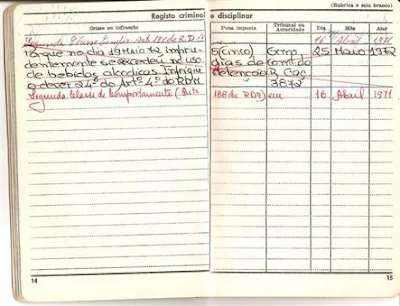 (Rubrica e selo branco)
Registo criminal e disciplinar
Crime ou infracção
Pena imposta
Tribunal ou Autoridade
Dia
Mês
Ano
Segunda Classe
11 Abril 1971
Porque no dia 19 Maio 72 impru-
dentemente se excedeu no uso
de bebidas alcoólicas Infringiu
o dever 24º do Artº 4º do RDM
5 (cinco) dias de detenção
Comp. Comt. do B. Caç 3872
25 Maio 1972
Segunda Classe de Comportamento (Artº 188 do RDM) em 16 Abril 1971
14
15